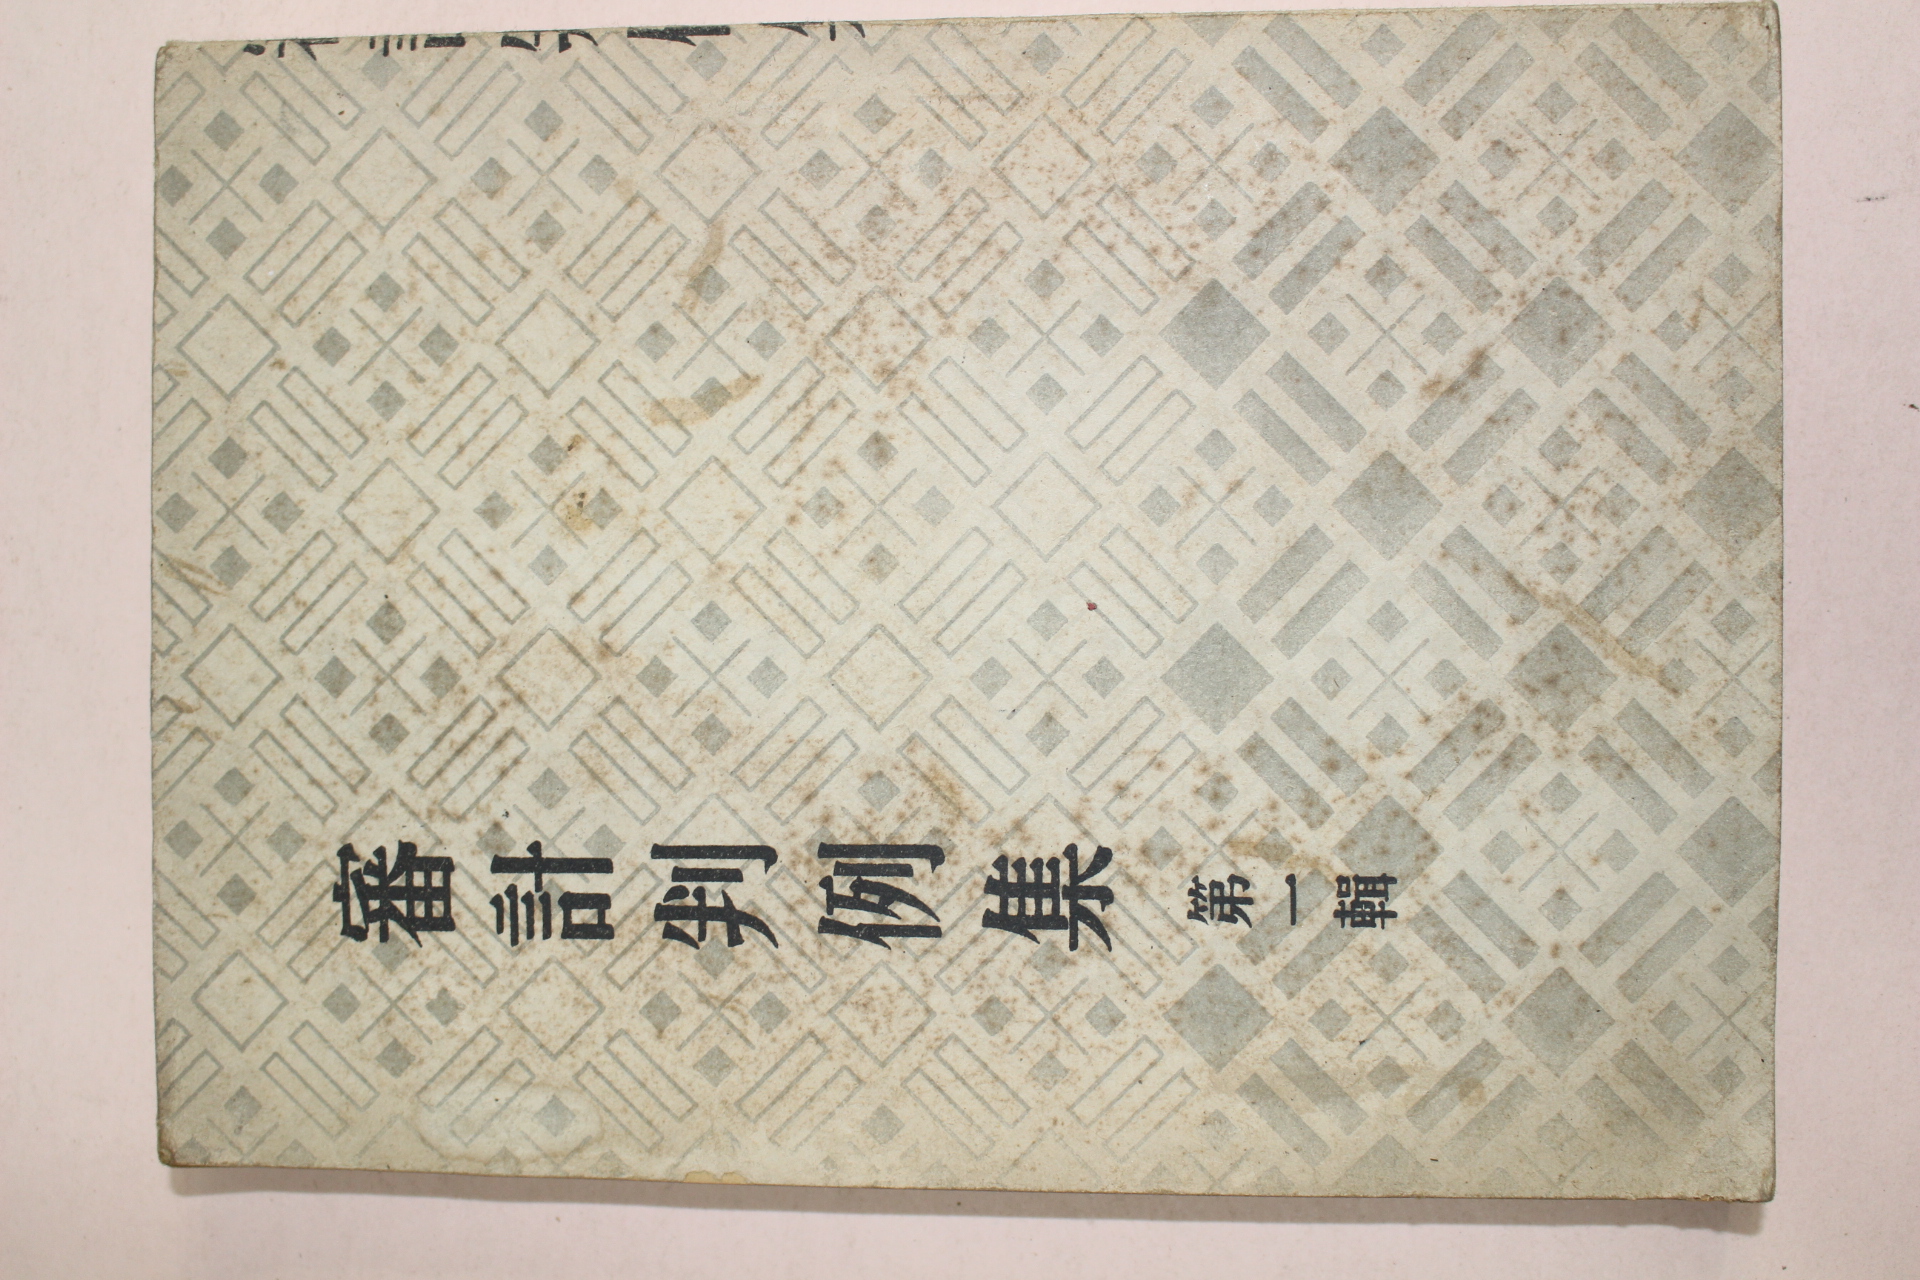 審計判例集 第一輯